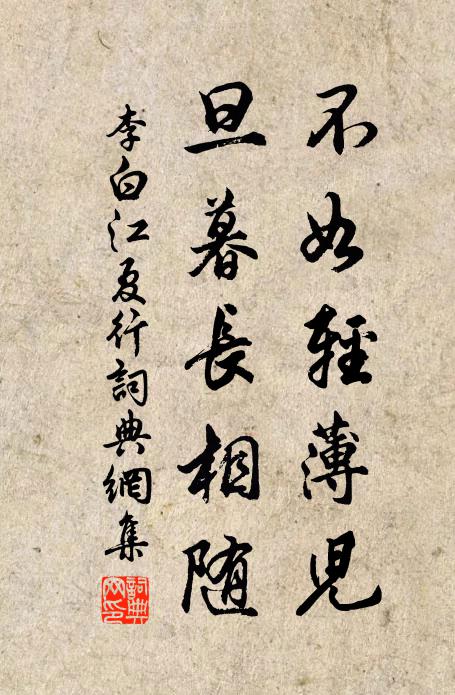 不如輕薄児
旦暮長相随
李白江夏行詞典網集
詞典網印